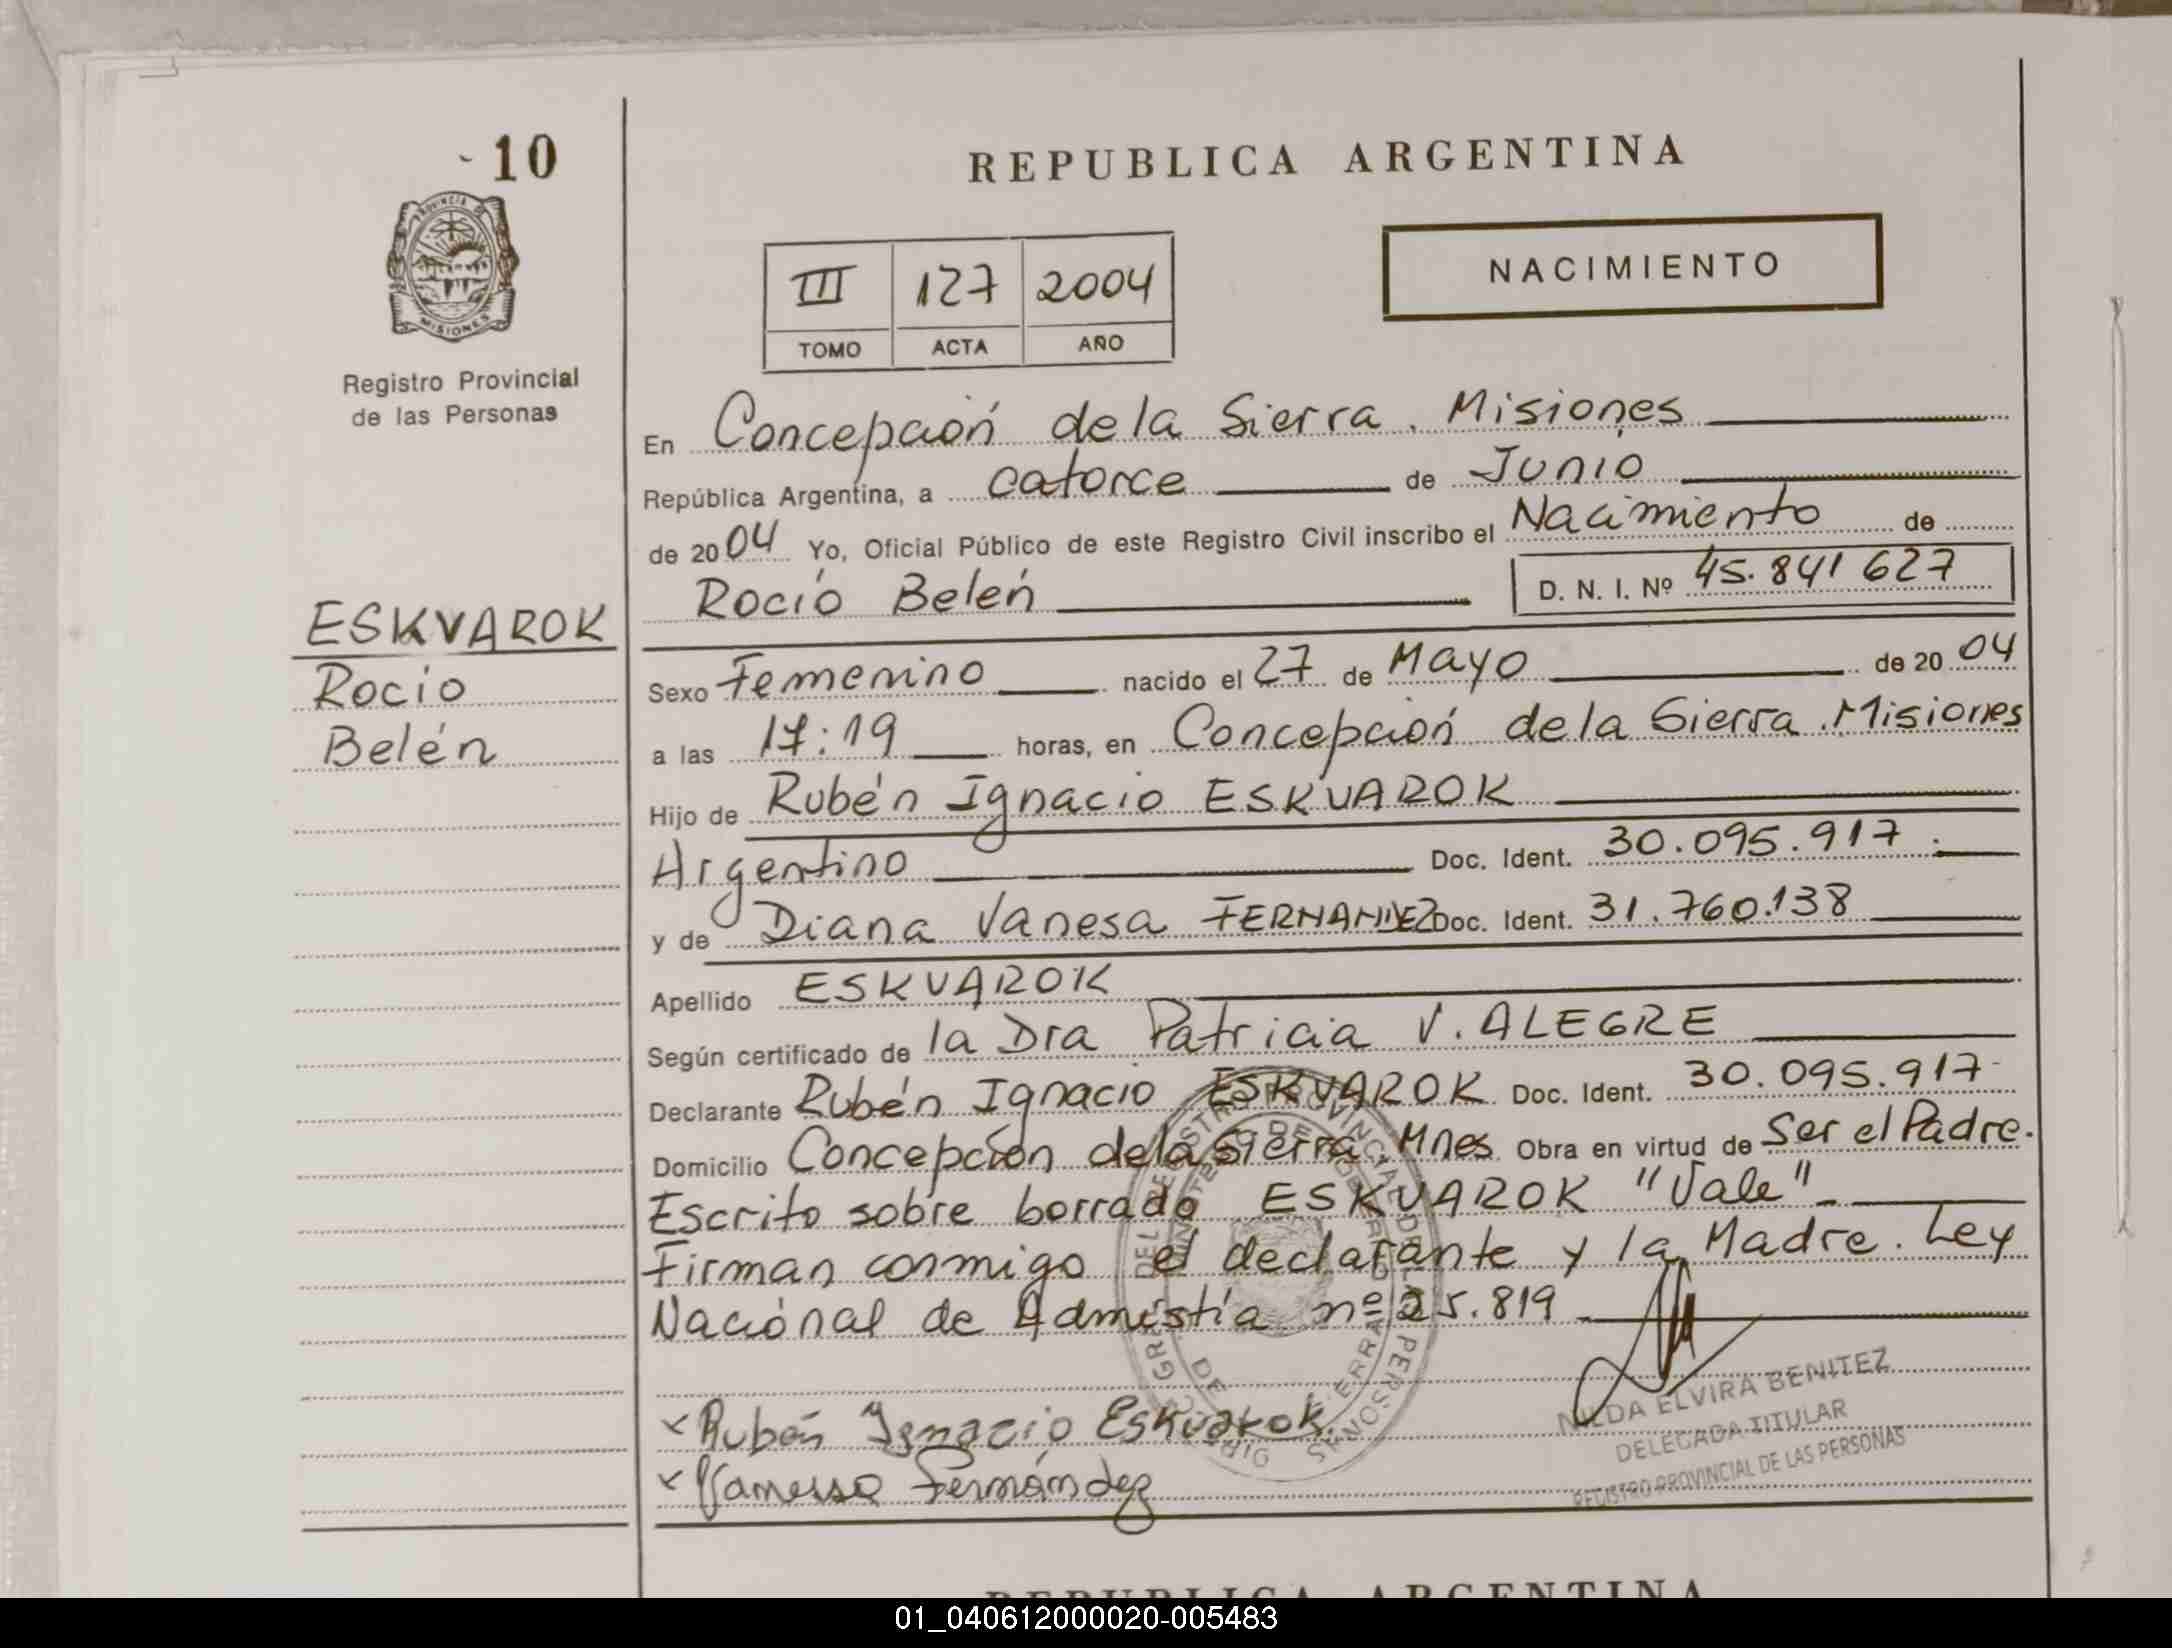 10
REPUBLICA ARGENTINA
PROVINCIA DE
MISIONES
Registro Provincial
de las Personas
III 127 2004
TOMO ACTA AÑO
NACIMIENTO
En Concepción de la Sierra. Misiones
República Argentina, a catorce de Junio
de 2004 Yo, Oficial Público de este Registro Civil inscribo el Nacimiento de
Rocío Belén D. N. I. Nº 45.841 627
ESKVAROK
Rocio
Belén
Sexo Femenino nacido el 27 de Mayo de 2004
a las 17:19 horas, en Concepción de la Sierra. Misiones
Hijo de Rubén Ignacio ESKVAROK
Argentino Doc. Ident. 30.095.917.
y de Diana Vanesa FERNANDEZ Doc. Ident. 31.760.138
Apellido ESKVAROK
Según certificado de la Dra Patricia V. ALEGRE
Declarante Rubén Ignacio ESKVAROK Doc. Ident. 30.095.917
Domicilio Concepción de la Sierra. Mnes Obra en virtud de Ser el Padre.
Escrito sobre borrado ESKVAROK "Vale"
Firman conmigo el declarante y la Madre. Ley
Naciónal de Admistía nº 25.819
x Rubén Ignacio Eskvarok.
x Vanessa Fernández
NILDA ELVIRA BENITEZ
DELEGADA TITULAR
REGISTRO PROVINCIAL DE LAS PERSONAS
REPUBLICA ARGENTINA
01_040612000020-005483